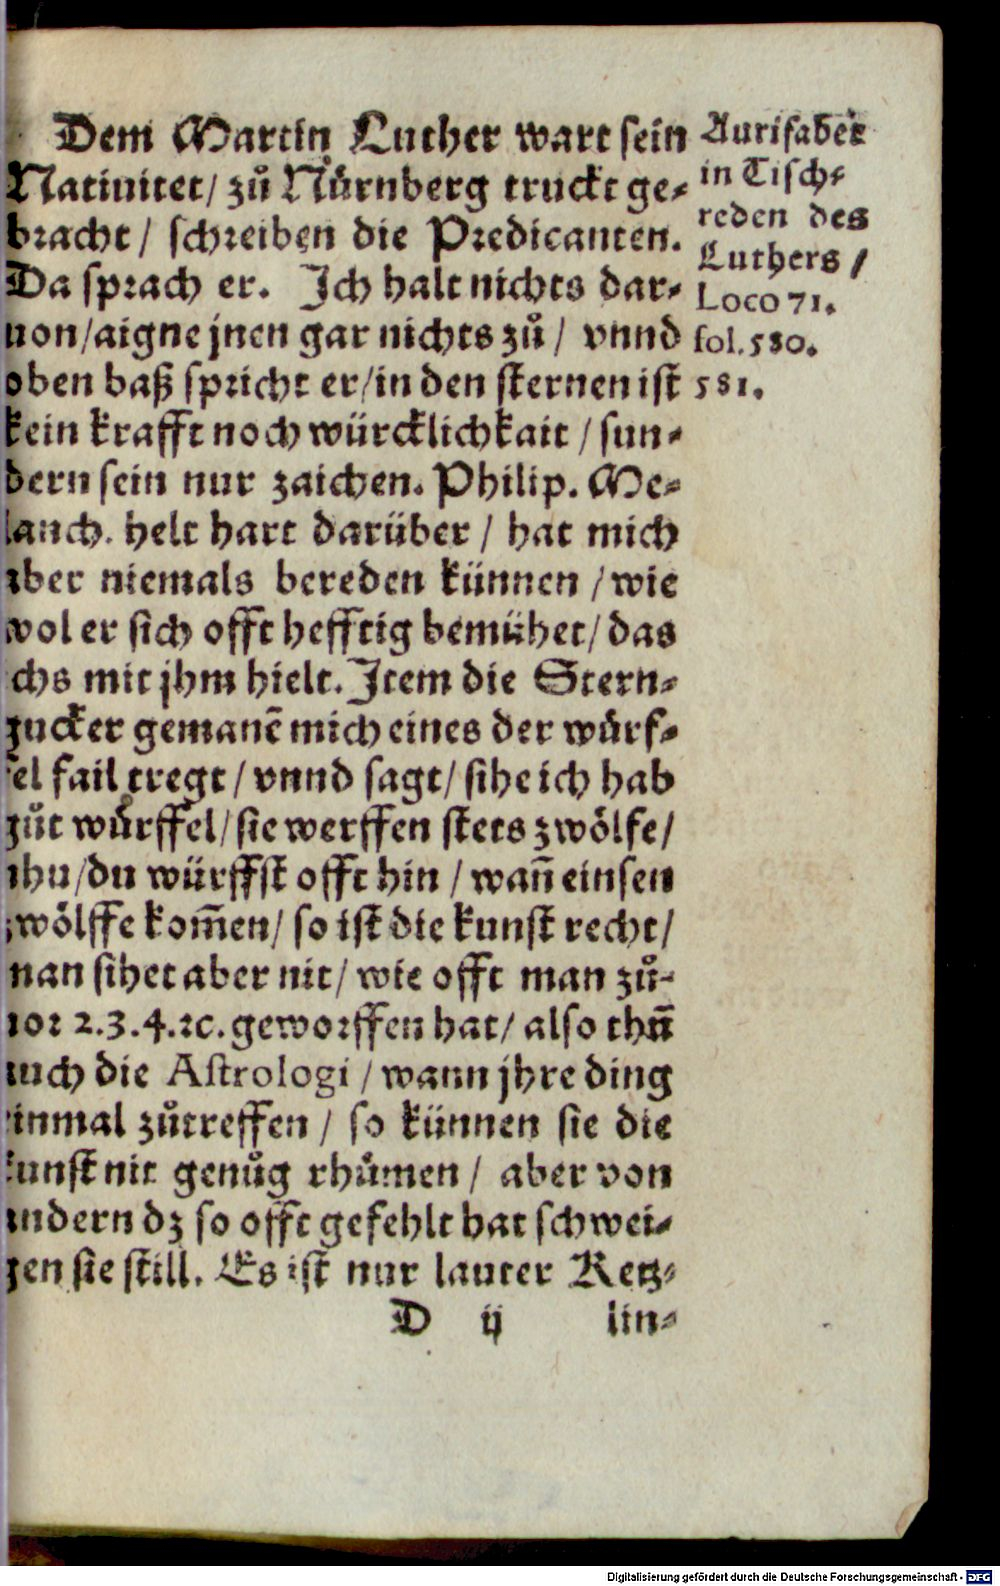 Dem Martin Luther wart sein
Natiuitet/ zů Nürnberg truckt ge⸗
bracht/ schreiben die Predicanten.
Da sprach er. Ich halt nichts dar⸗
uon/aigne jnen gar nichts zů/ vnnd
oben baß spricht er/in den sternen ist
kein krafft noch würcklichkait/ sun⸗
dern sein nur zaichen. Philip. Me⸗
lanch. helt hart darüber/ hat mich
aber niemals bereden künnen/wie
wol er sich offt hefftig bemühet/das
ichs mit jhm hielt. Item die Stern⸗
gucker gemanē mich eines der würf⸗
fel fail tregt/ vnnd sagt/ sihe ich hab
gůt würffel/sie werffen stets zwölfe/
ihu/du würffst offt hin/ wañ einsen
zwölffe kom̄en/ so ist die kunst recht/
man sihet aber nit/ wie offt man zů⸗
uor 2.3.4.ꝛc. geworffen hat/ also thůn̄
auch die Astrologi/wann jhre ding
einmal zůtreffen/ so künnen sie die
kunst nit genůg rhůmen/ aber von
andern dz so offt gefehlt hat schwei⸗
gen sie still. Es ist nur lauter Retz⸗
D ij lin⸗
Aurifaber
in Tisch⸗
reden des
Luthers/
Loco 71.
fol. 580.
581.
Digitalisierung gefördert durch die Deutsche Forschungsgemeinschaft - DFG